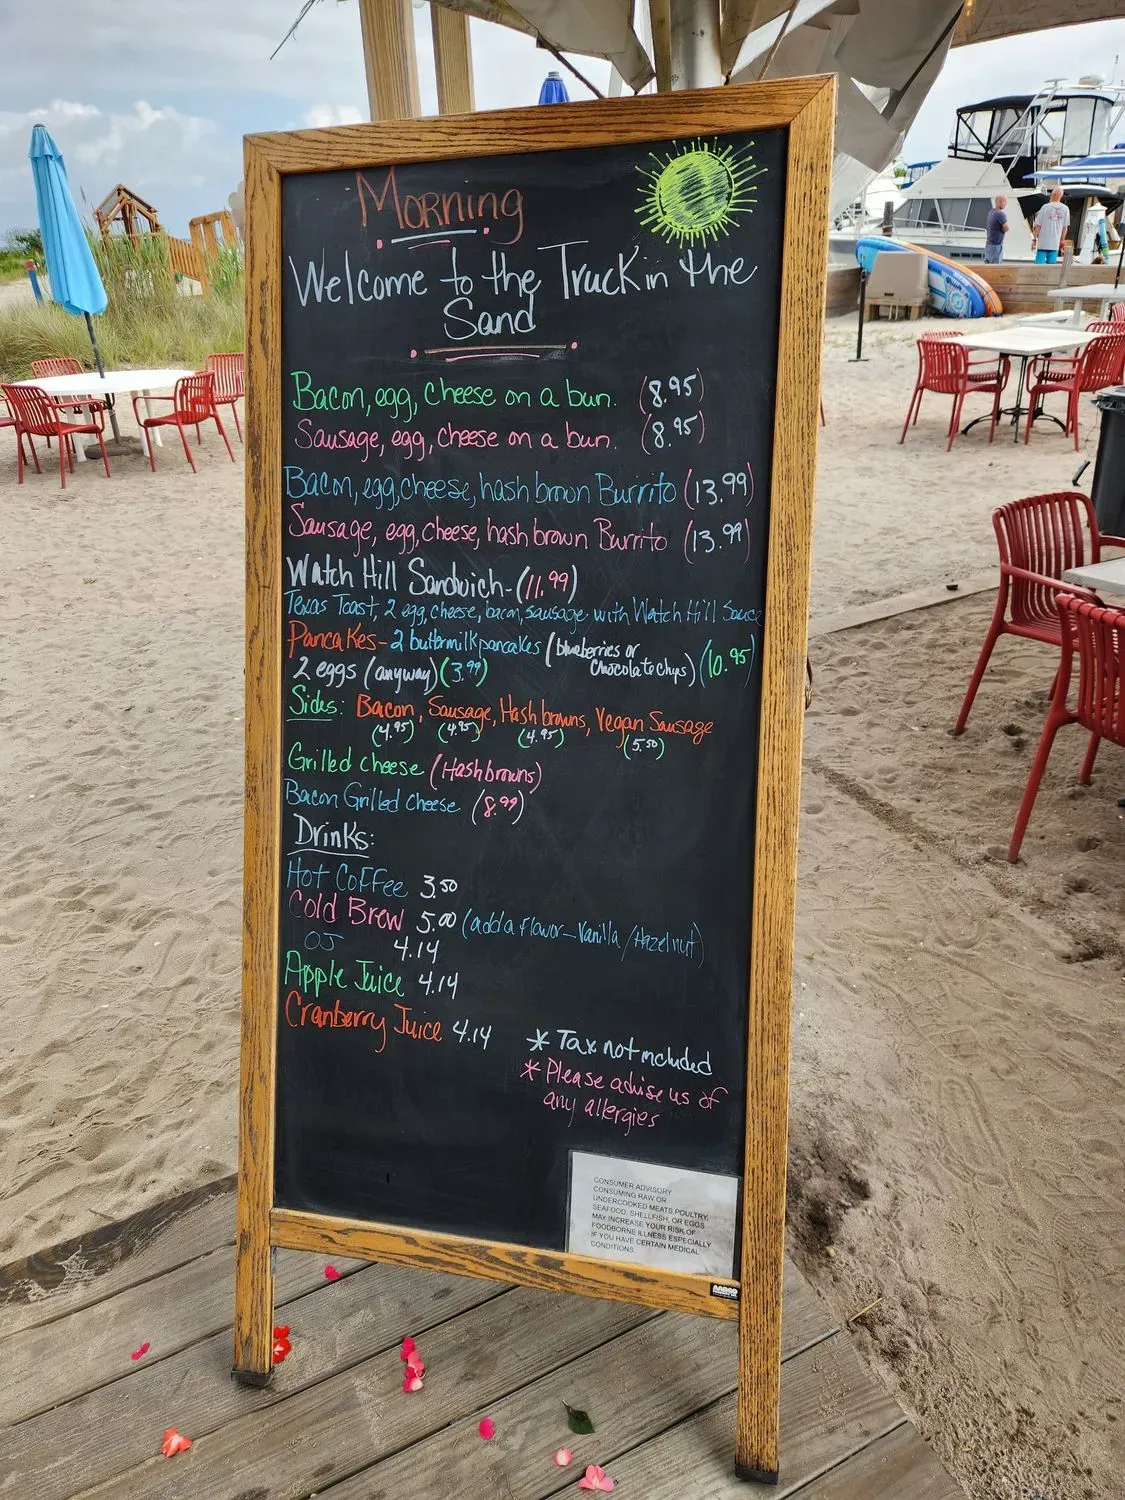 Morning
Welcome to the Truck in the
Sand
Bacon, egg, cheese on a bun. (8.95)
Sausage, egg, cheese on a bun. (8.95)
Bacon, egg, cheese, hash brown Burrito (13.99)
Sausage, egg, cheese, hash brown Burrito (13.99)
Watch Hill Sandwich - (11.99)
Texas Toast, 2 egg, cheese, bacon, sausage with Watch Hill Sauce
Pancakes - 2 buttermilk pancakes (blueberries or
chocolate chyps) (10.95)
2 eggs (anyway) (3.99)
Sides: Bacon, Sausage, Hash browns, Vegan Sausage
(4.95) (4.95) (4.95) (5.50)
Grilled cheese (Hashbrowns)
Bacon Grilled Cheese (8.99)
Drinks:
Hot Coffee 3.50
Cold Brew 5.00 (add a flavor - Vanilla / Hazelnut)
OJ 4.14
Apple Juice 4.14
Cranberry Juice 4.14
* Tax not included
* Please advise us of
any allergies
CONSUMER ADVISORY
CONSUMING RAW OR
UNDERCOOKED MEATS, POULTRY,
SEAFOOD, SHELLFISH, OR EGGS
MAY INCREASE YOUR RISK OF
FOODBORNE ILLNESS ESPECIALLY
IF YOU HAVE CERTAIN MEDICAL
CONDITIONS.
AARCO